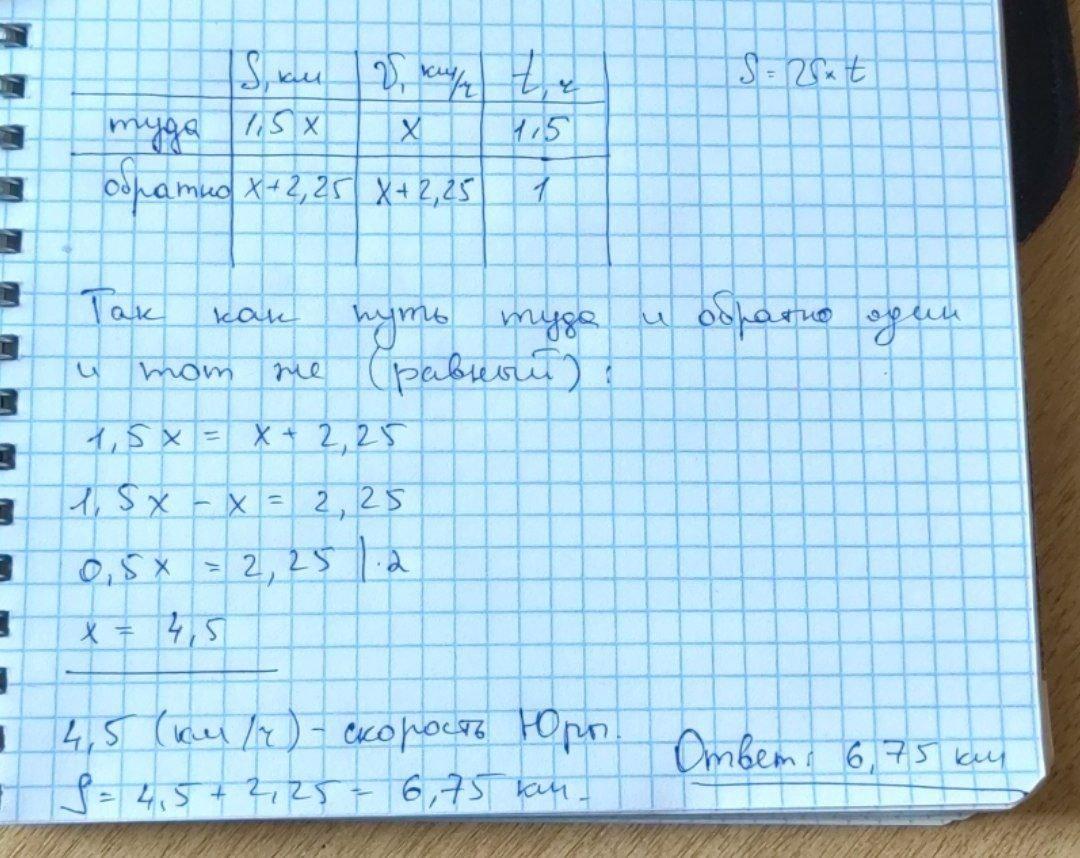 S, км V, км/ч t, ч S = V × t
туда 1,5 x x 1,5
обратно x + 2,25 x + 2,25 1
Так как путь туда и обратно один
и тот же (равный):
1,5x = x + 2,25
1,5x - x = 2,25
0,5x = 2,25 |·2
x = 4,5
4,5 (км/ч) - скорость Юры.
S = 4,5 + 2,25 = 6,75 км.
Ответ: 6,75 км